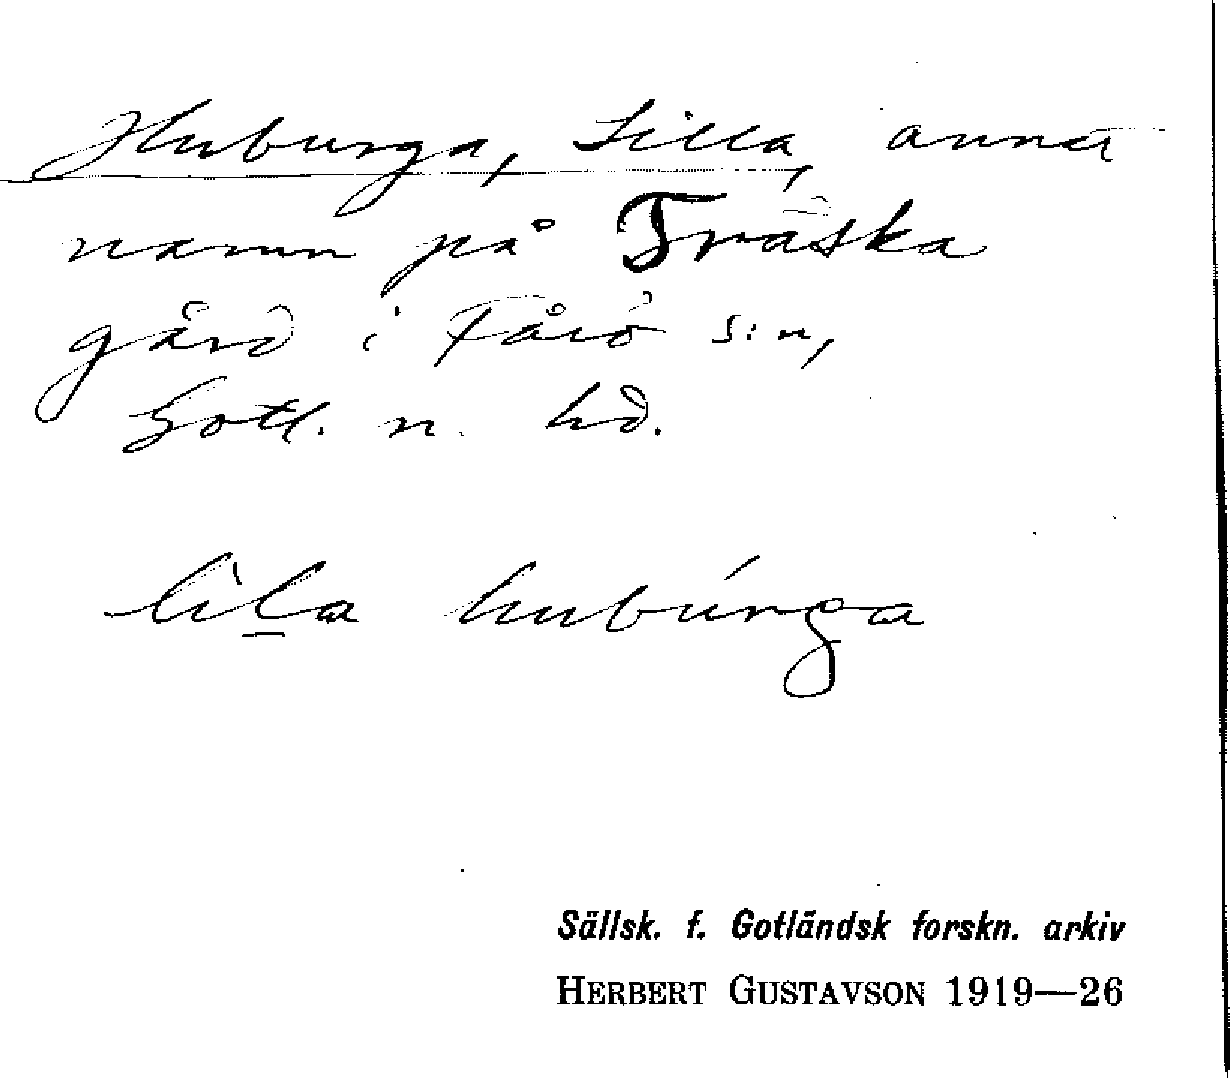 Huburga, Lilla, annat
namn på Träska
gård i Fårö s:n,
Gotl. n. hd.
lìl̲a hubúrga
Sällsk. f. Gotländsk forskn. arkiv
HERBERT GUSTAVSON 1919—26